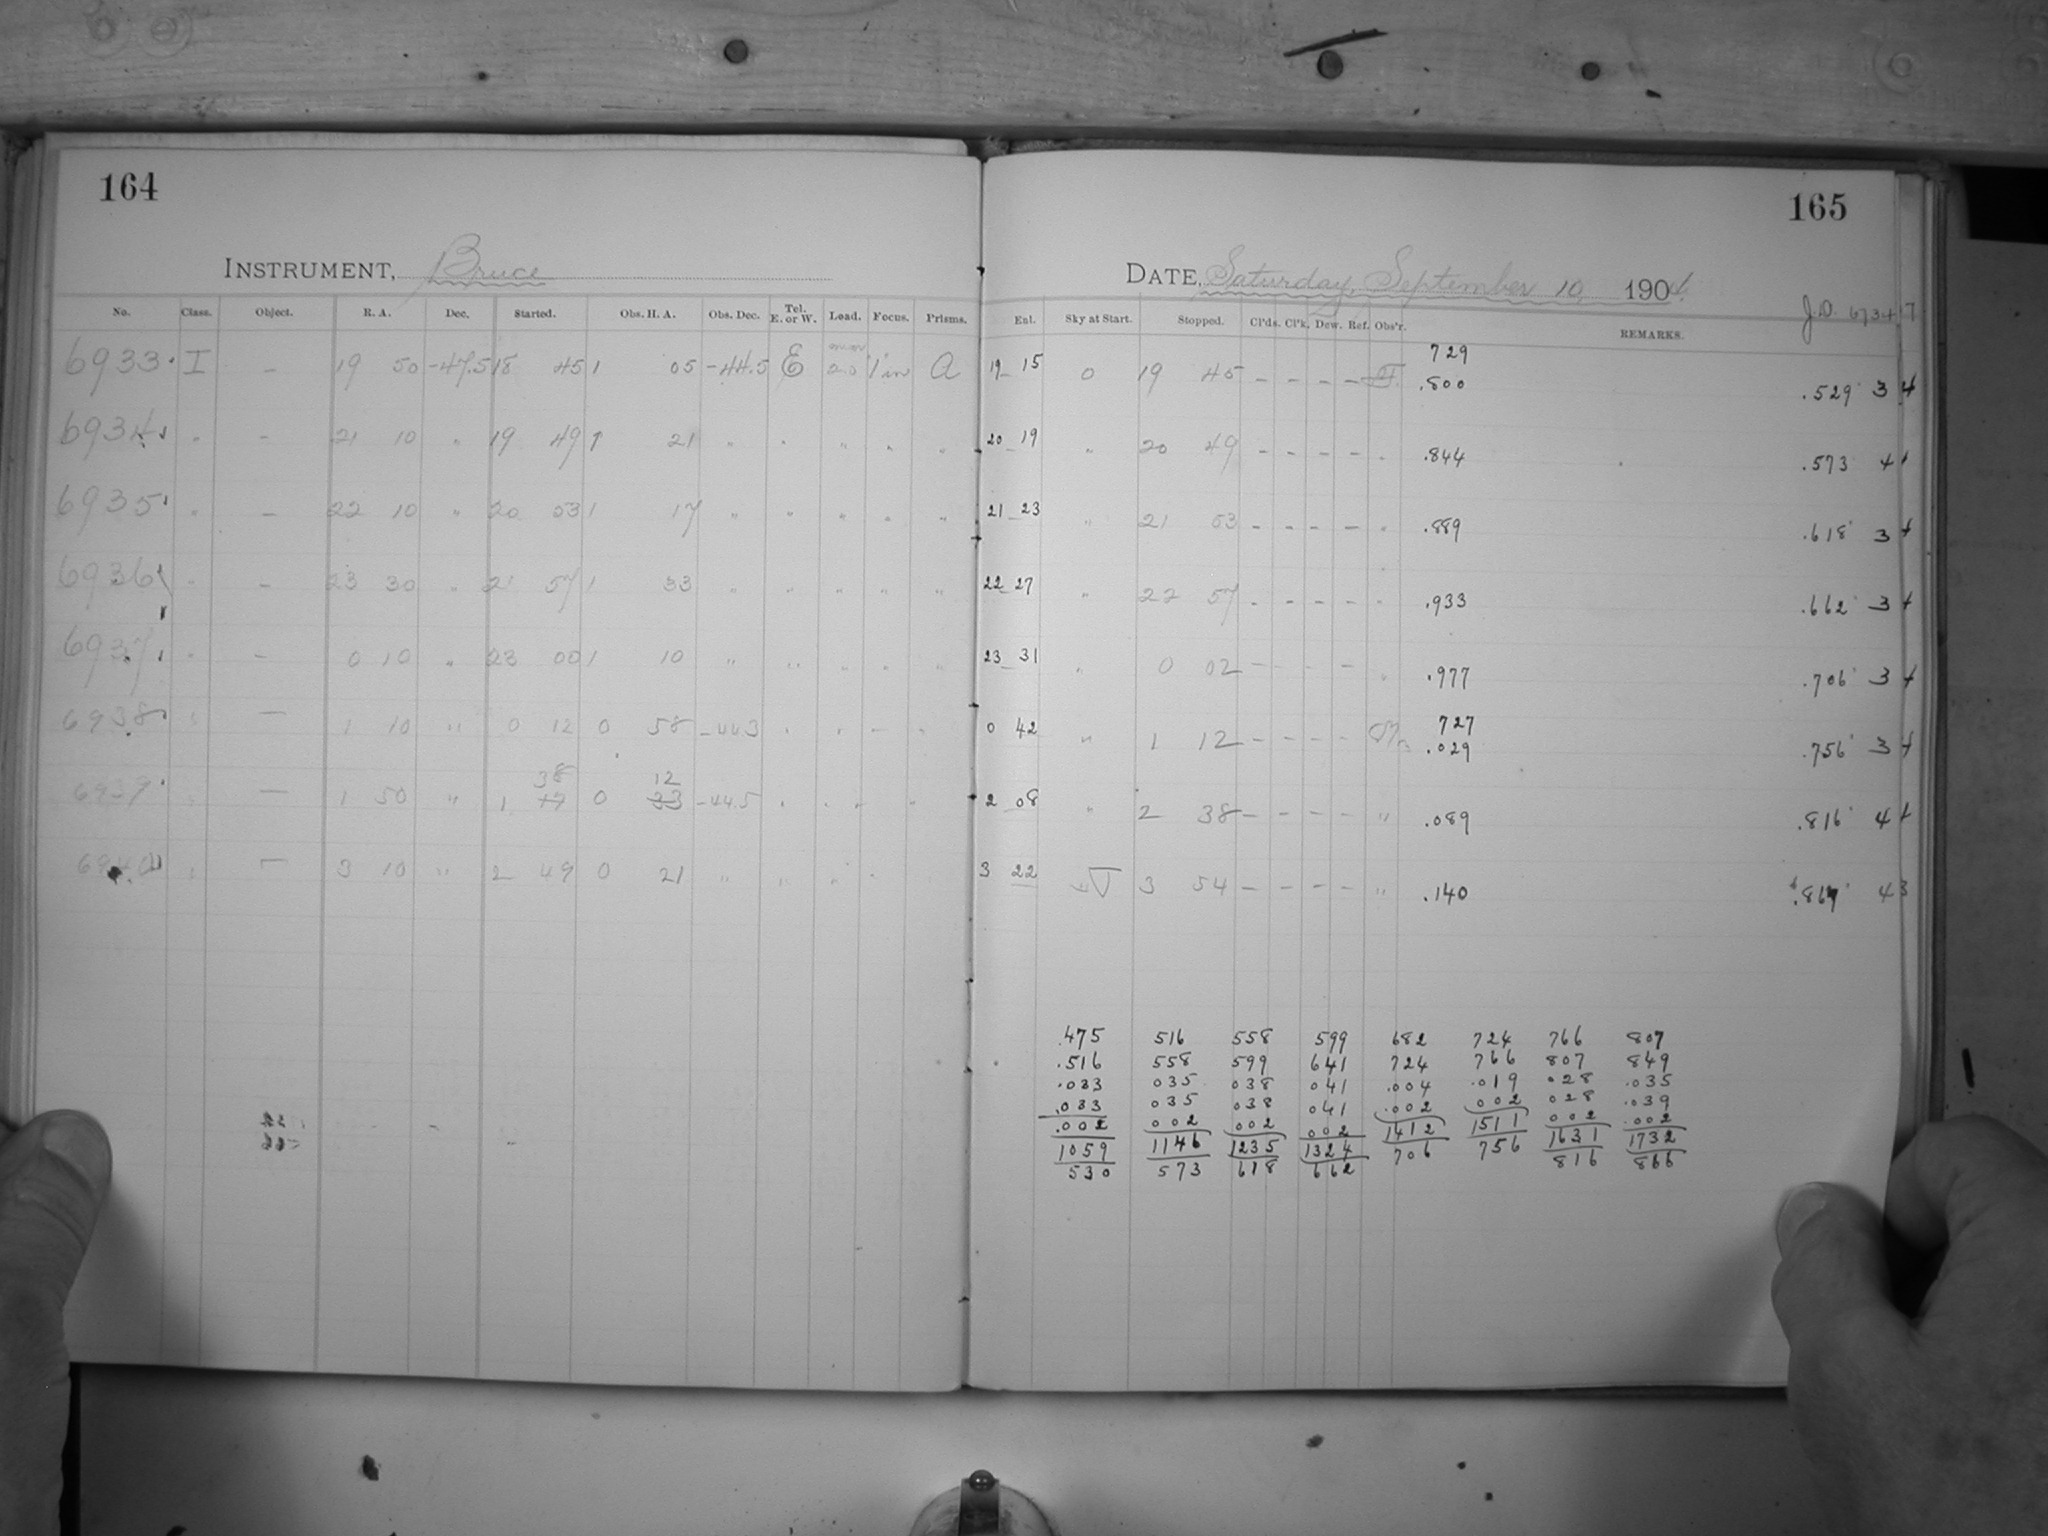 164
165
INSTRUMENT, Bruce
DATE, Saturday, September 10, 1904.
No. Class. Object. R. A. Dec. Started. Obs. H. A. Obs. Dec. Tel. E. or W. Load. Focus. Prisms. Enl. Sky at Start. Stopped. Cl'ds. Cl'k. Dew. Ref. Obs'r. REMARKS. J.D.
6933 I - 19 50 -47.5 18 45 1 05 -44.5 E 1 in A 19 15 0 19 45 - - - - 729 .800 .529 3 4
6934 " - 21 10 " 19 49 1 21 " " " " " 20 19 " 20 49 - - - - " .844 .573 4
6935 " - 22 10 " 20 53 1 17 " " " " " 21 23 " 21 53 - - - - " .889 .618 3
6936 " - 23 30 " 21 57 1 33 " " " " " 22 27 " 22 57 - - - - " .933 .662 3
6937 " - 0 10 " 23 00 1 10 " " " " " 23 31 " 0 02 - - - " .977 .706 3
6938 " - 1 10 " 0 12 0 58 -44.3 " " - " 0 42 " 1 12 - - - - 727 .029 .756 3
6939 " - 1 50 " 1 38 0 12 -44.5 " " " " 2 08 " 2 38 - - - - " .089 .816 4
6940 " - 3 10 " 2 49 0 21 " " " " 3 22 3 54 - - - - " .140 4 3
.475 516 558 599 682 724 766 807
.516 558 599 641 724 766 807 849
.033 035 038 041 .004 .019 028 .035
.033 035 038 041 .002 002 028 .039
.002 002 002 002 1412 1511 002 .002
1059 1146 1235 1324 706 756 1631 1732
530 573 618 662 816 866